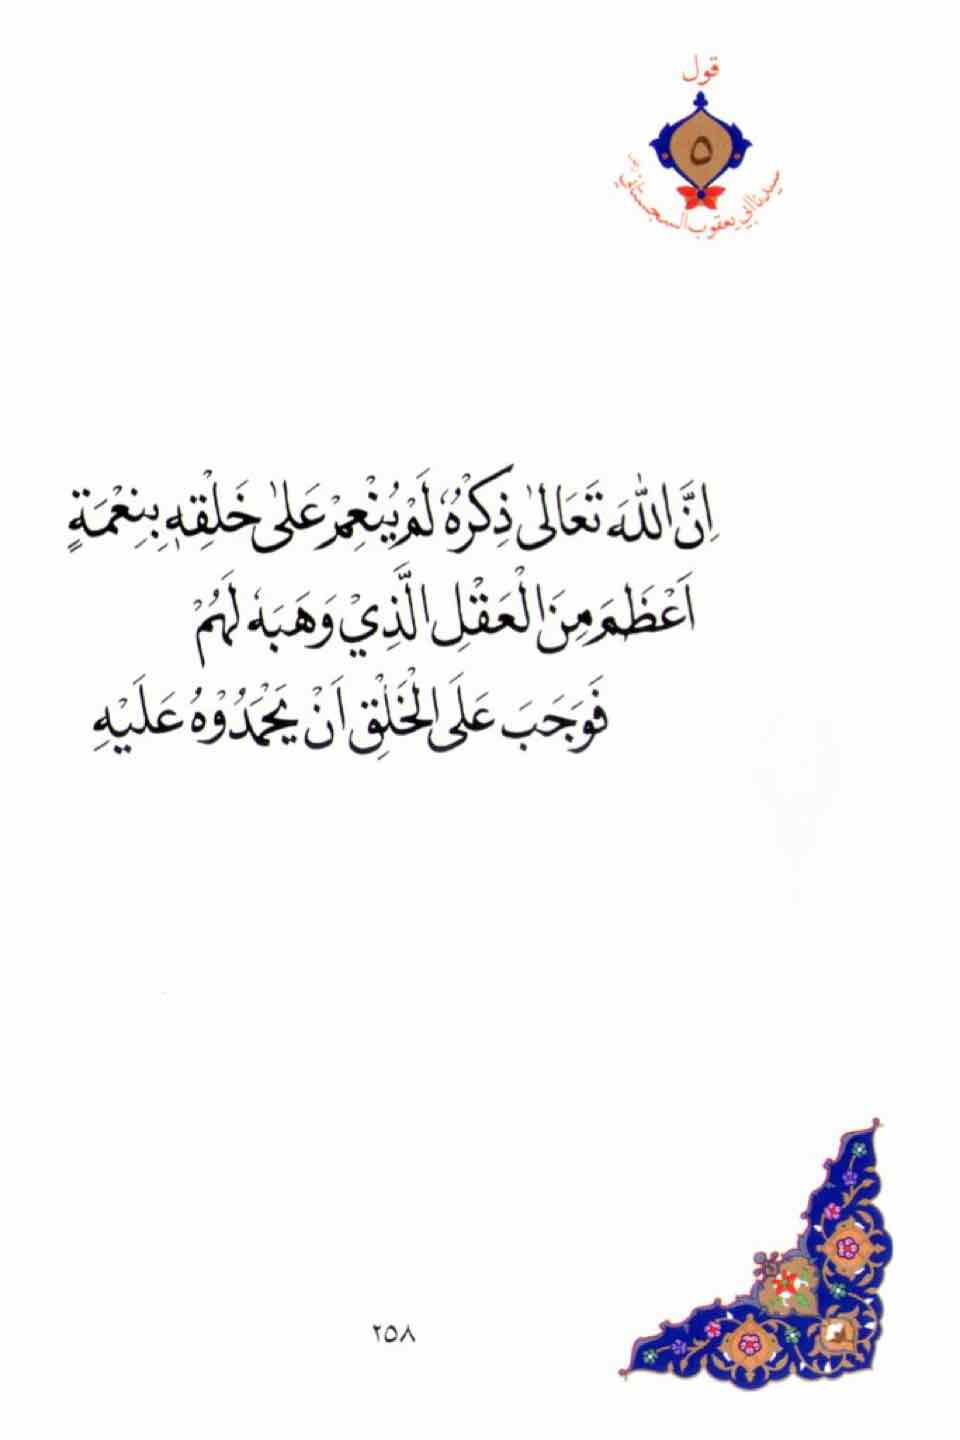 قول
٥
سيدنا ابي يعقوب السجستاني
اِنَّ اللّٰهَ تَعَالىٰ ذِكْرُهٗ لَمْ يُنْعِمْ عَلىٰ خَلْقِهٖ بِنِعْمَةٍ
اَعْظَمَ مِنَ الْعَقْلِ الَّذِيْ وَهَبَهٗ لَهُمْ
فَوَجَبَ عَلَى الْخَلْقِ اَنْ يَحْمَدُوْهُ عَلَيْهِ
٢٥٨